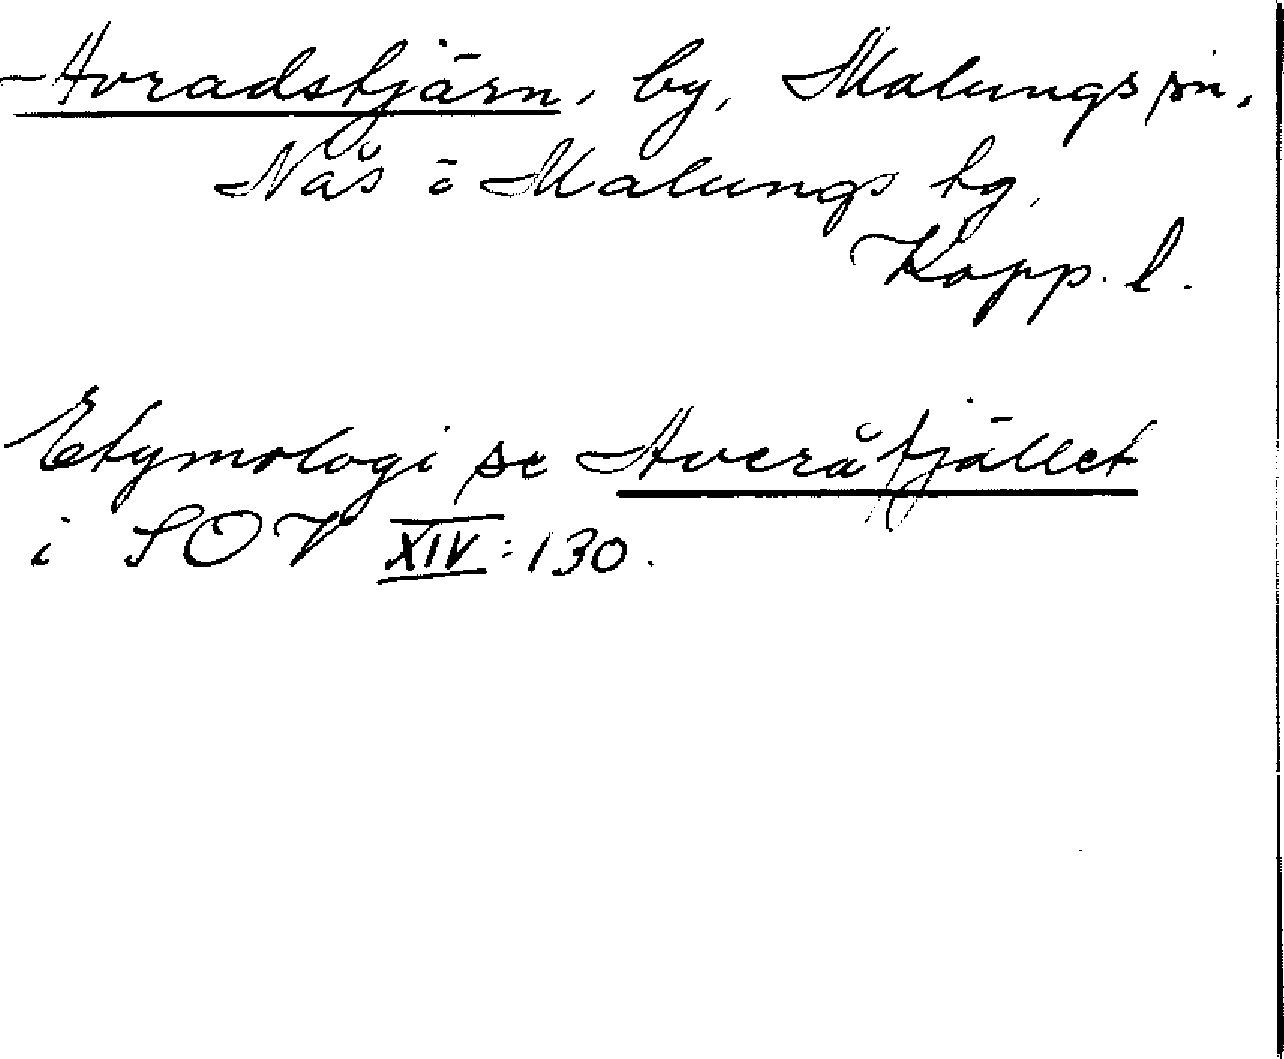 Avradstjärn, by, Malungs sn,
Nås o Malungs tg,
Kopp. l.
Etymologi se Averåfjället
i SOV XIV:130.